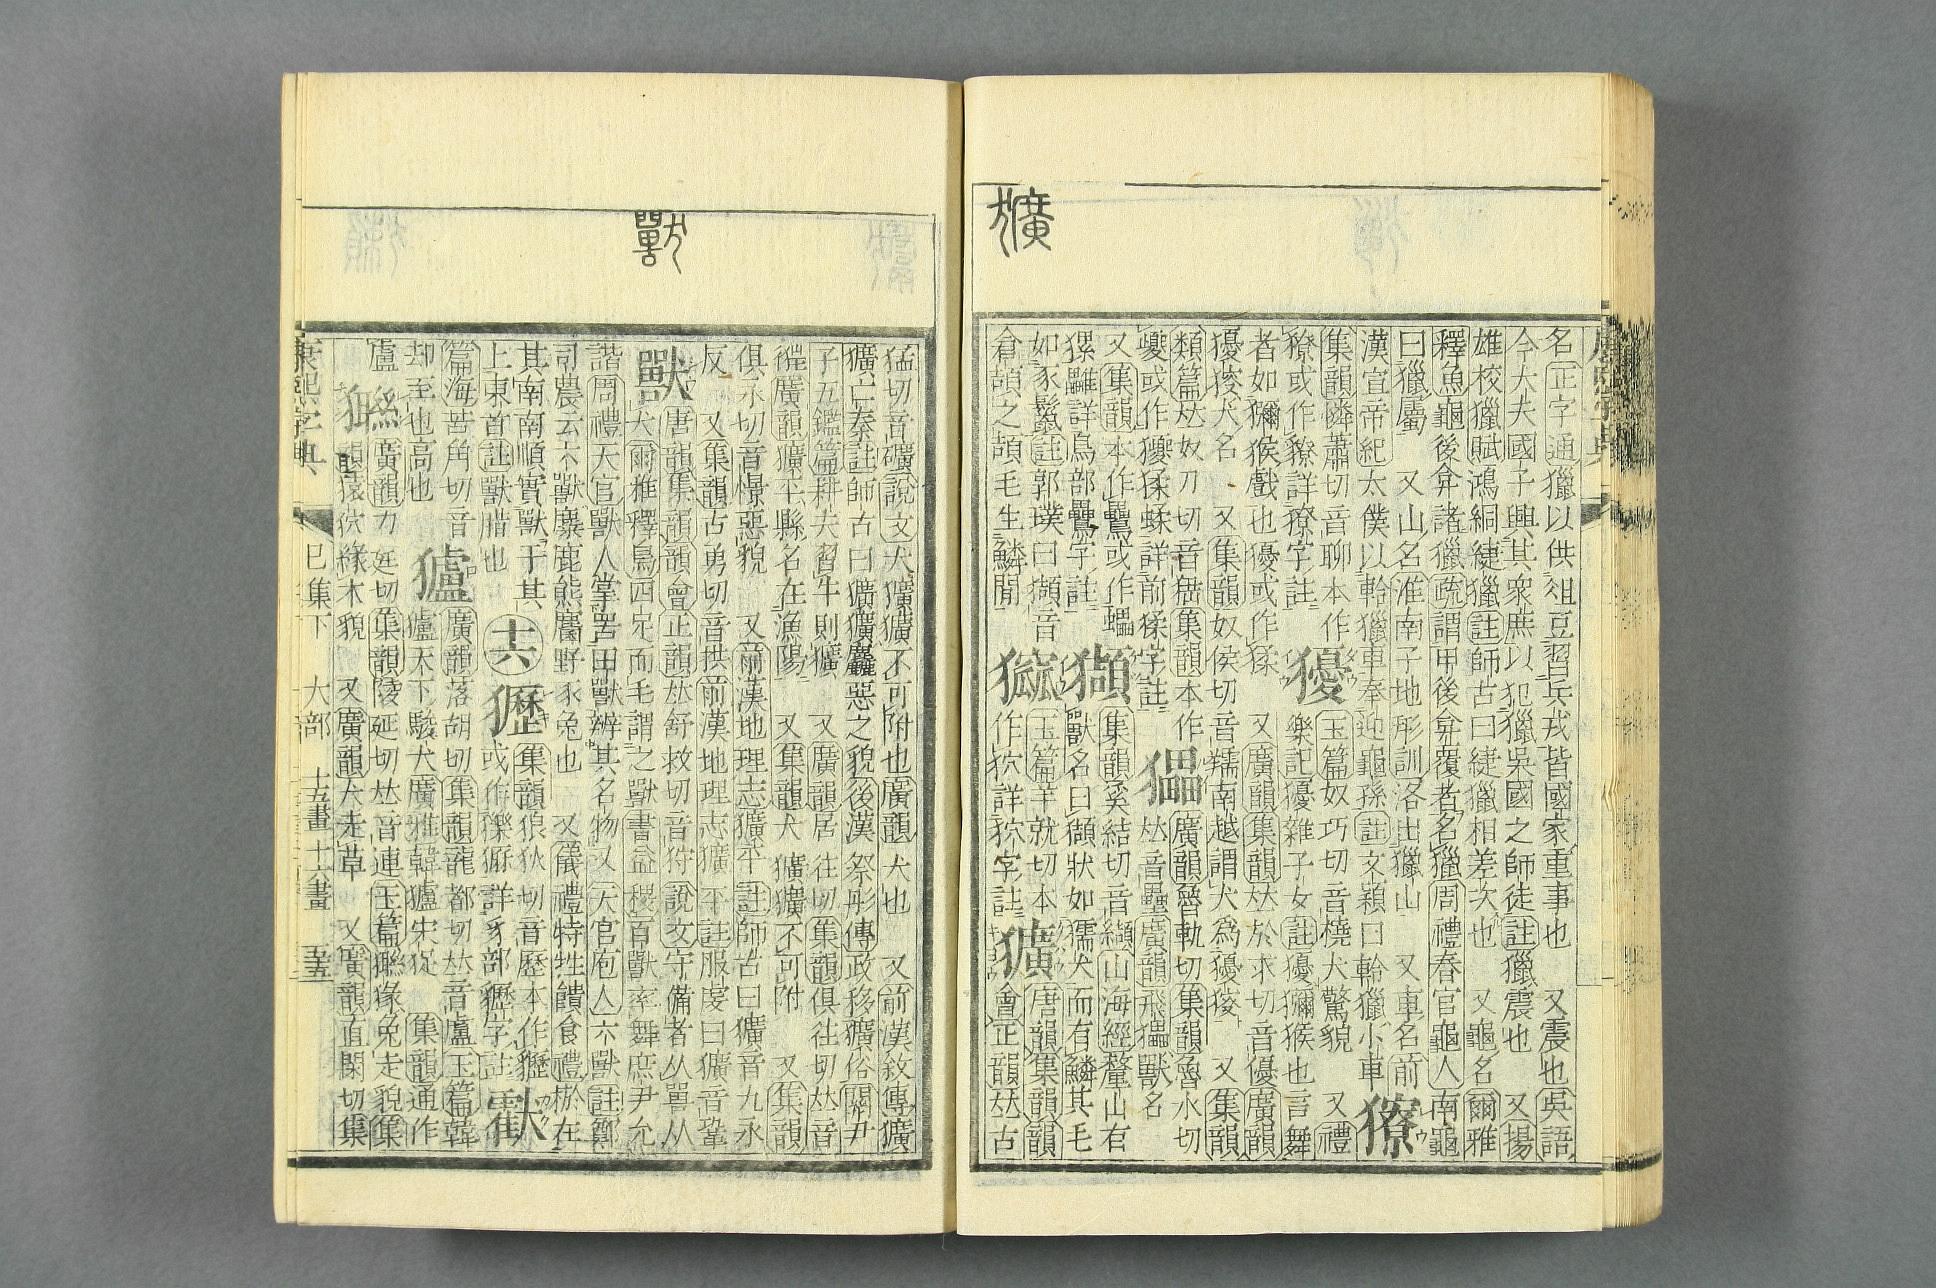 獷
名正字通獵以供俎豆習兵戎皆國家重事也 又震也吳語
今大夫國子興其衆庶以犯獵吳國之師徒註獵震也 又揚
雄校獵賦鴻絧緁獵註師古曰緁獵相差次也 又龜名爾雅
釋魚龜後弇諸獵疏謂甲後弇覆者名獵周禮春官龜人南龜
曰獵屬 又山名淮南子地形訓洛出獵山 又車名前
漢宣帝紀太僕以軨獵車奉迎龜孫註文穎曰軨獵小車 獠
集韻憐蕭切音聊本作獶玉篇奴巧切音橈犬驚貌 又禮
獠或作獠詳獠字註 樂記獶雜子女註獶獼猴也言舞
者如獼猴戲也獶或作猱 又廣韻集韻𠀤於求切音優廣韻
獶㺅犬名 又集韻奴侯切音羺南越謂犬爲獶㺅 又集韻
類篇𠀤奴刀切音猱集韻本作 獵 廣韻魯軌切集韻魯水切
夒或作獿猱蝚詳前猱字註 𠀤音壘廣韻飛獵獸名
又集韻本作鸓或作 集韻奚結切音纈山海經釐山有
獸名曰獺狀如獳犬而有鱗其毛
如豕鬣註郭璞曰獺音 玉篇羊就切本 唐韻集韻韻
倉頡之頡毛生鱗閒 作狖詳狖字註 獷 會正韻𠀤古
獸
猛切音礦說文犬獷獷不可附也廣韻犬也 又前漢敘傳獷
獷亡秦註師古曰獷獷麤惡之貌後漢祭彤傳政移獷俗關尹
子五鑑篇耕夫習牛則獷 又廣韻居往切集韻俱往切𠀤音
廣韻獷平縣名在漁陽 又集韻犬 獷獷不可附 又集韻
俱永切音憬惡貌 又前漢地理志獷平註師古曰獷音九永
反 又集韻古勇切音拱前漢地理志獷平註服虔曰獷音鞏
獸 唐韻集韻韻會正韻𠀤舒救切音狩說文守備者从嘼从
犬爾雅釋鳥四足而毛謂之獸書益稷百獸率舞庶尹允
諧周禮天官獸人掌罟田獸辨其名物又天官庖人六獸註鄭
司農云六獸麋鹿熊麕野豕兔也 又儀禮特牲饋食禮棜在
其南南順實獸于其 十六 玀 集韻狼狄切音歷本作
上東首註獸腊也 或作 詳豸部 字註 獾
篇海苦角切音 獹 廣韻落胡切集韻龍都切𠀤音盧玉篇韓
却至也高也 獹天下駿犬廣雅韓獹宋㹱 集韻通作
盧 廣韻力延切集韻陵延切𠀤音連玉篇 猭兔走貌集
韻猨狖緣木貌 又廣韻犬走草 又廣韻直閑切集
康熙字典
巳集下 犬部 十五畫十六畫 五十五